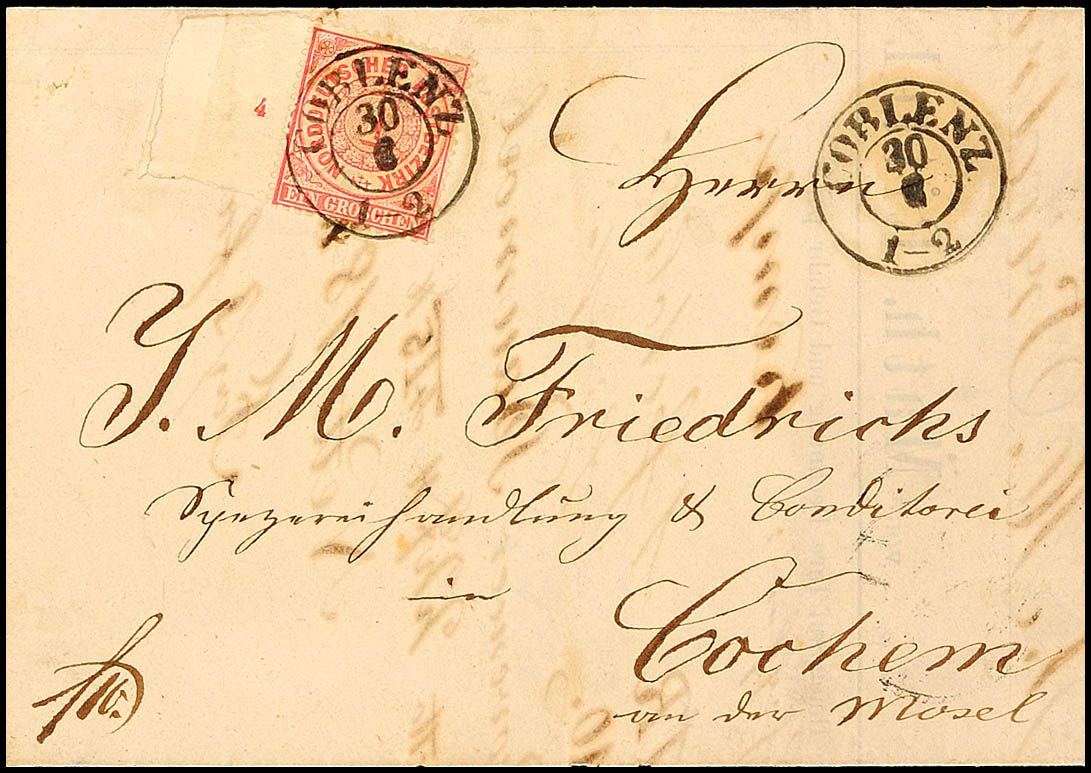 4
NORDDEUTSCHER POSTBEZIRK
EIN GROSCHEN
COBLENZ
30
1-2
COBLENZ
30
1-2
Herrn
J. M. Friedrichs
Spezereihandlung & Conditorei
in
Cochem
an der Mosel